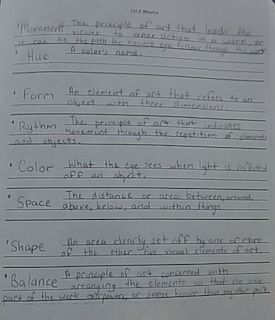 'Movement The principle of art that leads the
viewer to sense action in a work, or
it can be the path the viewer's eye follows through the work
' Hue A color's name.
' Form An element of art that refers to an
object with three dimensions.
' Rythm The principle of art that indicates
movement through the repetition of elements
and objects.
' Color What the eye sees when light is reflected
off an object.
' Space The distance or area between, around,
above, below, and within things
' Shape An area clearly set off by one or more
of the other five visual elements of art.
' Balance A principle of art concerned with
arranging the elements so that no one
part of the work overpowers, or seems heavier than any other part.